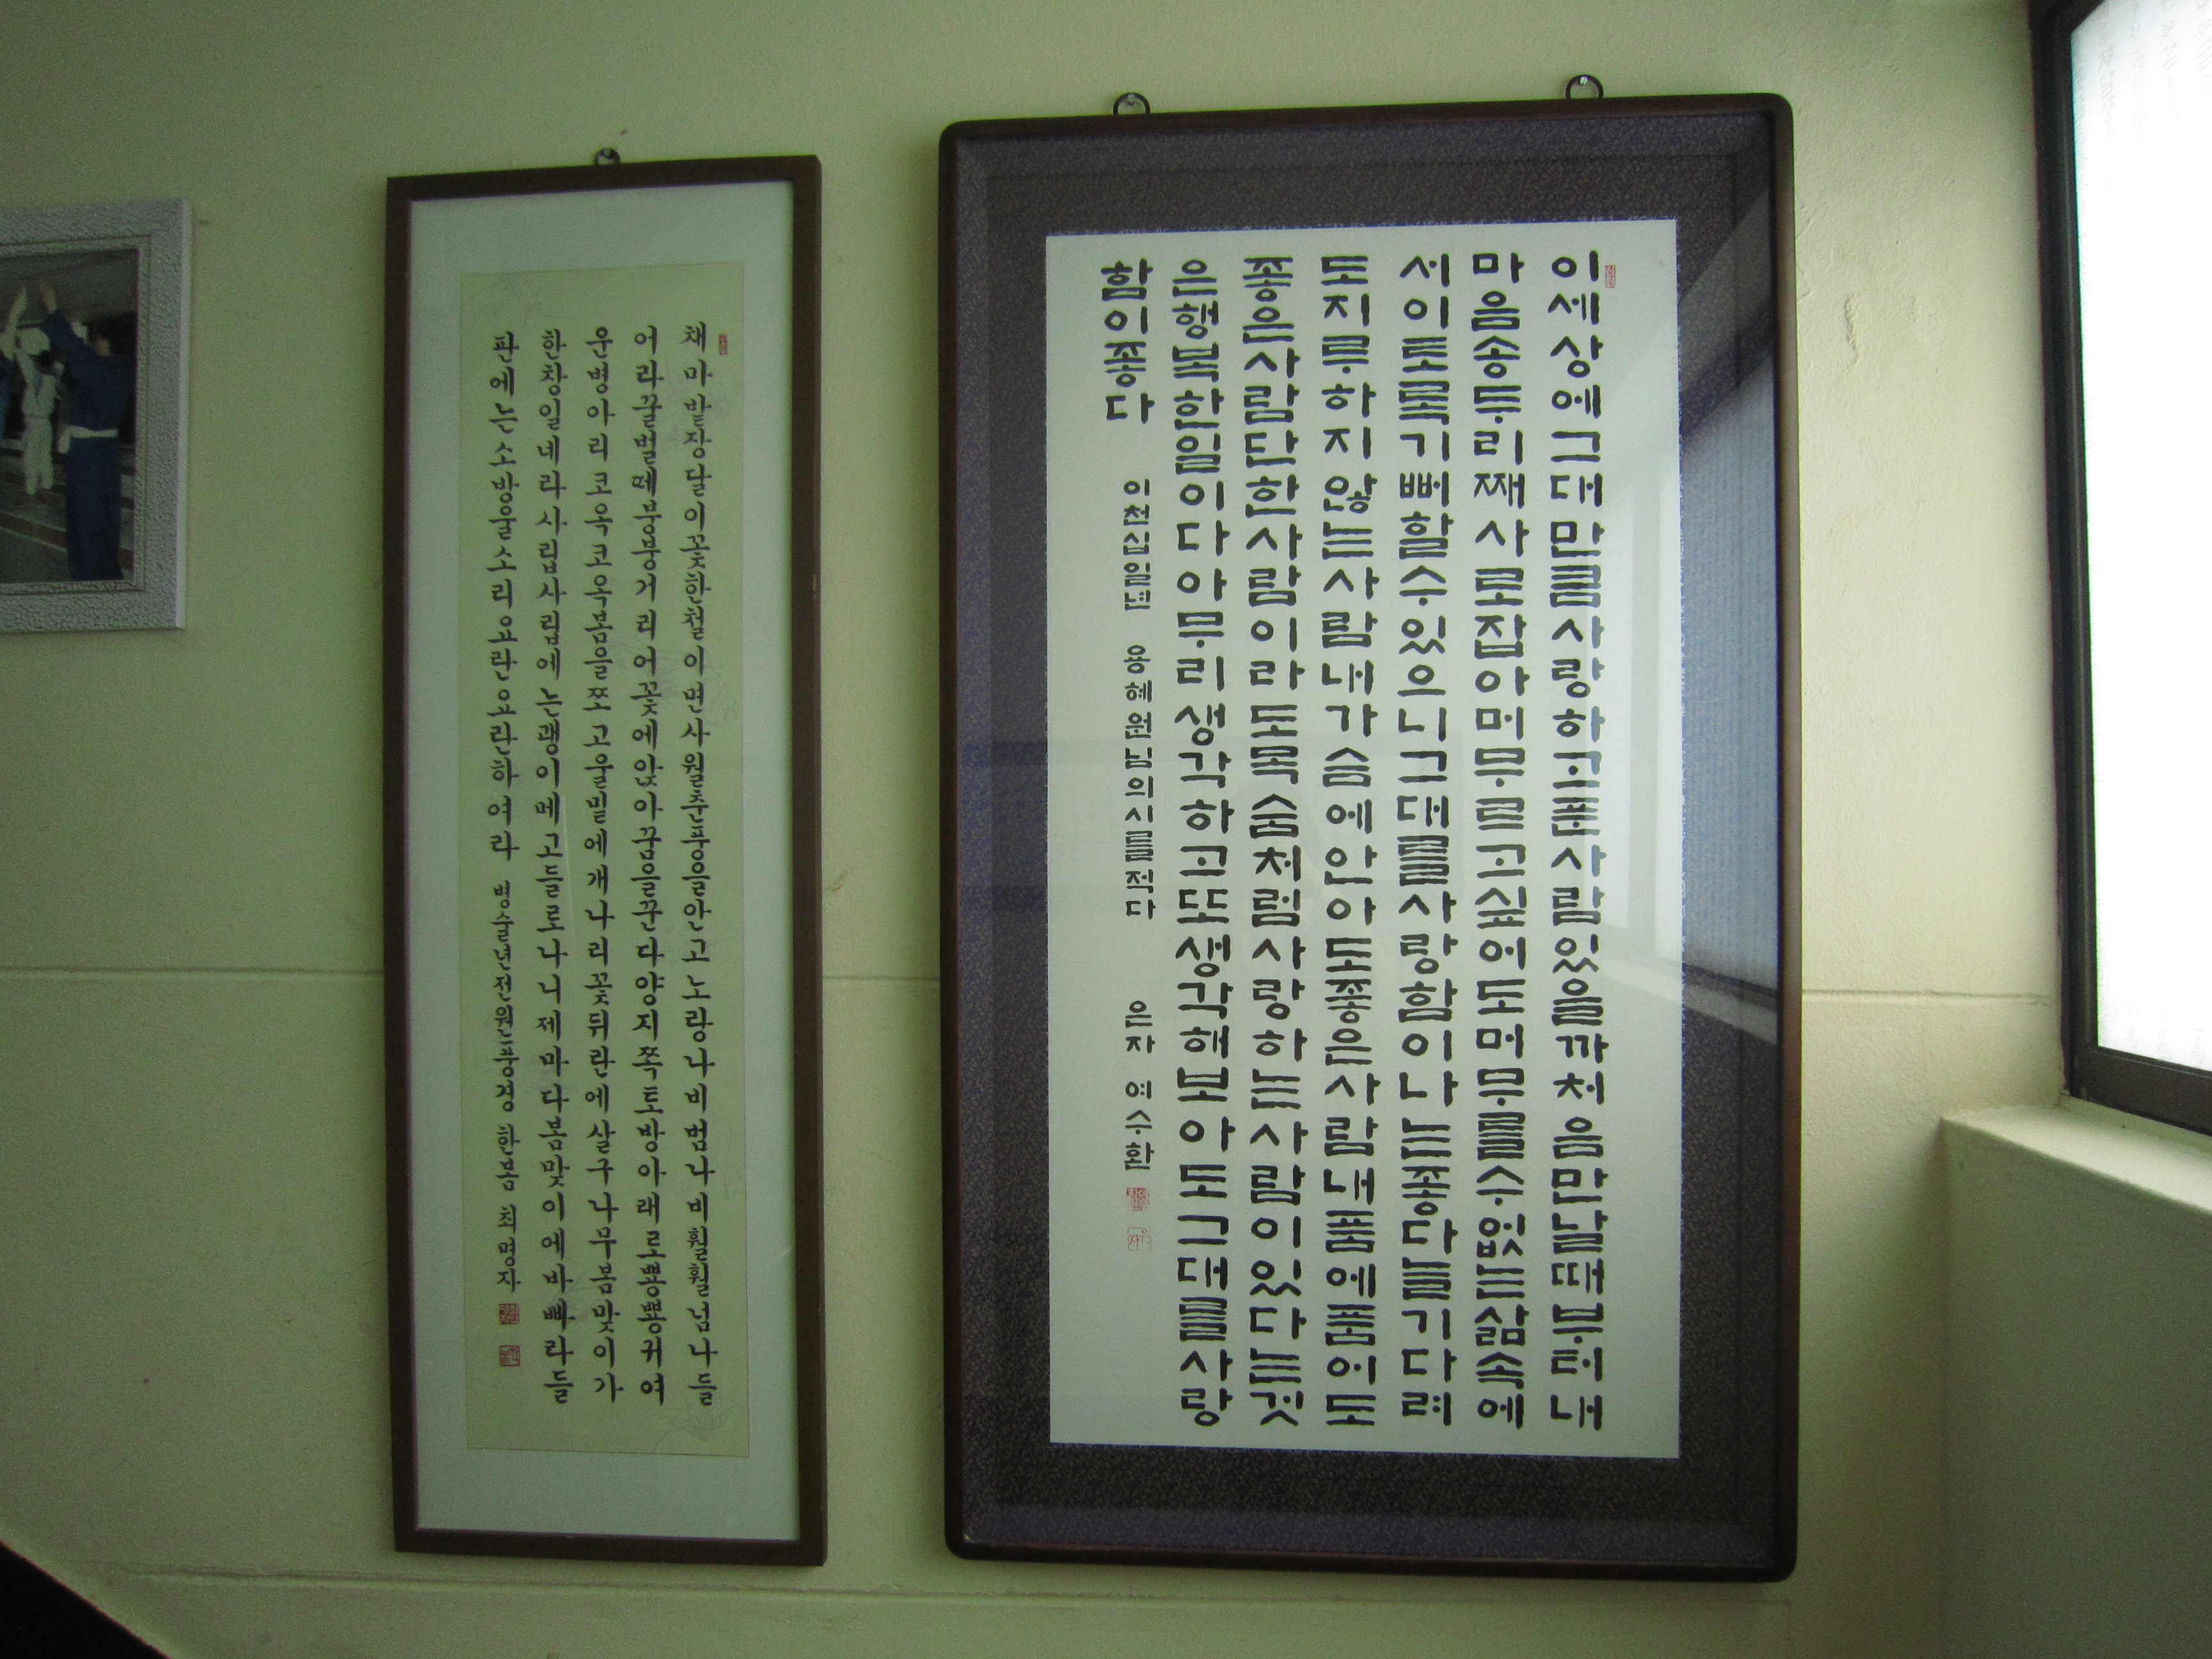 이세상에그대만큼사랑하고픈사람있을까처음만날때부터내
마음송두리째사로잡아머무르고싶어도머무를수없는삶속에
서이토록기뻐할수있으니그대를사랑함이나는좋다늘기다려
도지루하지않는사람내가슴에안아도좋은사람내품에품어도
좋은사람단한사람이라도록숨처럼사랑하는사람이있다는것
은행복한일이다아무리생각하고또생각해보아도그대를사랑
함이좋다
이천십일년 용혜원님의시를적다 은자 여수환
채마밭장달이꽃한철이면사월춘풍을안고노랑나비범나비훨훨넘나들
어라꿀벌떼붕붕거리어꽃에앉아꿈을꾼다양지쪽토방아래로뿅뿅귀여
운병아리코옥코옥봄을쪼고울밑에개나리꽃뒤란에살구나무봄맞이가
한창일네라사립사립에는괭이메고들로나니제마다봄맞이에바빠라들
판에는소방울소리요란요란하여라
병술년전원풍경 한봄 최명자